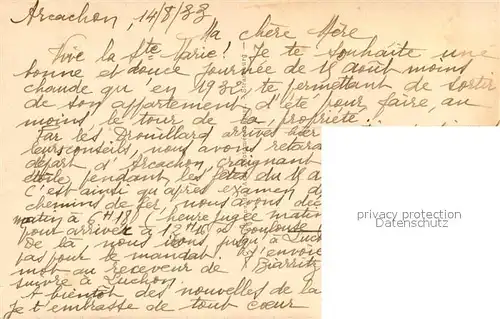 Arcachon, 14/8/33
Ma chère Mère
Vive la Ste Marie! Je te souhaite une
bonne et douce journée de 15 août moins
chaude qu'en 1932, te permettant de sortir
de son appartement d'été pour faire, au
moins le tour de la propriété.
Par les Drouillard arrivés hier
leurs conseils, nous avons retar
départ d'Arcachon, craignant
pendant les fêtes du 15 a
C'est ainsi qu'après examen d
chemins de fer, nous avons déc
matin à 6H18 (heure jugée matin
pour arriver à 12H à Toulouse
De là, nous irons jusqu'à Luch
pas pour le mandat. J'envoie
mot au receveur de Biarritz
suivre à Luchon.
A bientôt des nouvelles de la
Je t'embrasse de tout cœur
privacy protection
Datenschutz